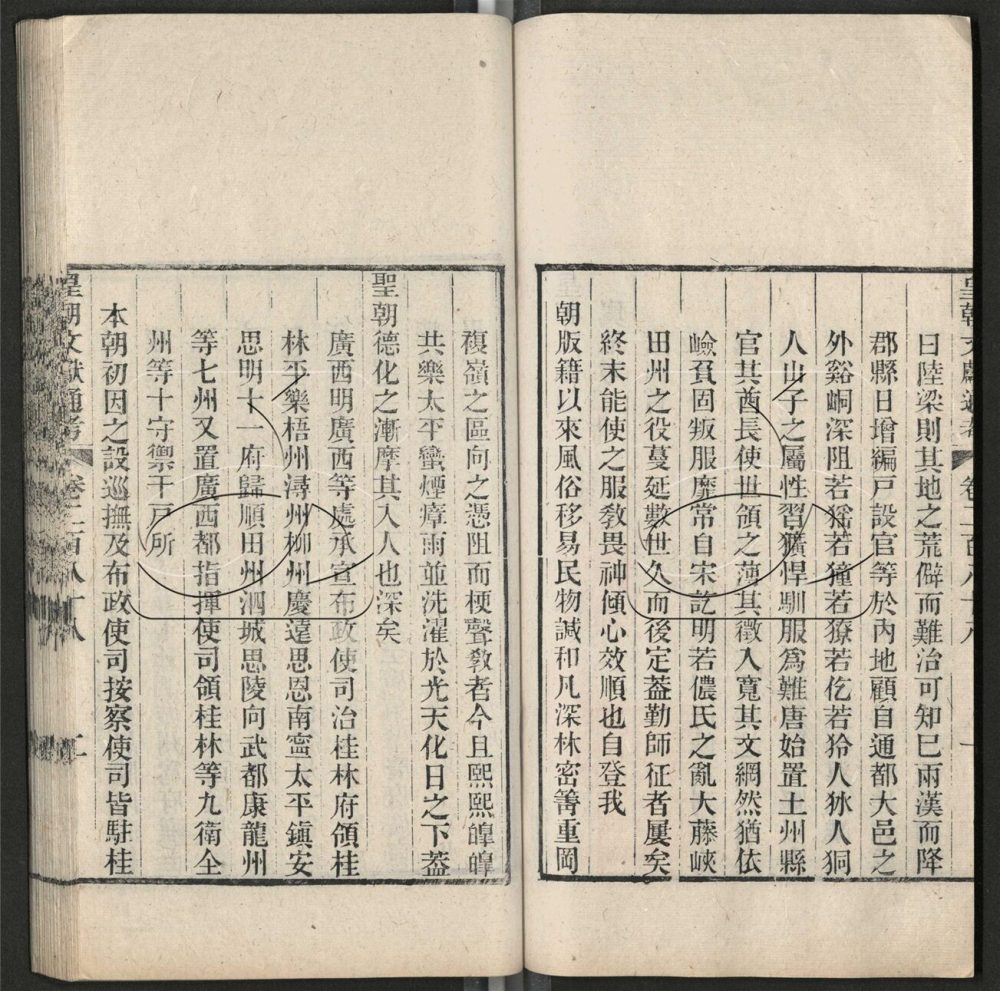 皇朝文獻通考 卷二百八十八 一
曰陸梁則其地之荒僻而難治可知巳兩漢而降
郡縣日增編戸設官等於內地顧自通都大邑之
外谿峒深阻若猺若獞若獠若仡若狑人㹫人狪
人山子之屬性習獷悍馴服爲難唐始置土州縣
官其酋長使世領之薄其徵入寬其文網然猶依
嶮負固叛服靡常自宋訖明若儂氏之亂大藤峽
田州之役蔓延數世久而後定葢勤師征者屢矣
終未能使之服敎畏神傾心效順也自登我
朝版籍以來風俗移易民物諴和凡深林密箐重岡
複嶺之區向之憑阻而梗聲敎者今且熙熙皥皥
共樂太平蠻煙瘴雨並洗濯於光天化日之下葢
聖朝德化之漸摩其入人也深矣
廣西明廣西等處承宣布政使司治桂林府領桂
林平樂梧州潯州柳州慶遠思恩南寧太平鎭安
思明十一府歸順田州泗城思陵向武都康龍州
等七州又置廣西都指揮使司領桂林等九衛全
州等十守禦千戸所
本朝初因之設巡撫及布政使司按察使司皆駐桂
皇朝文獻通考 卷二百八十八